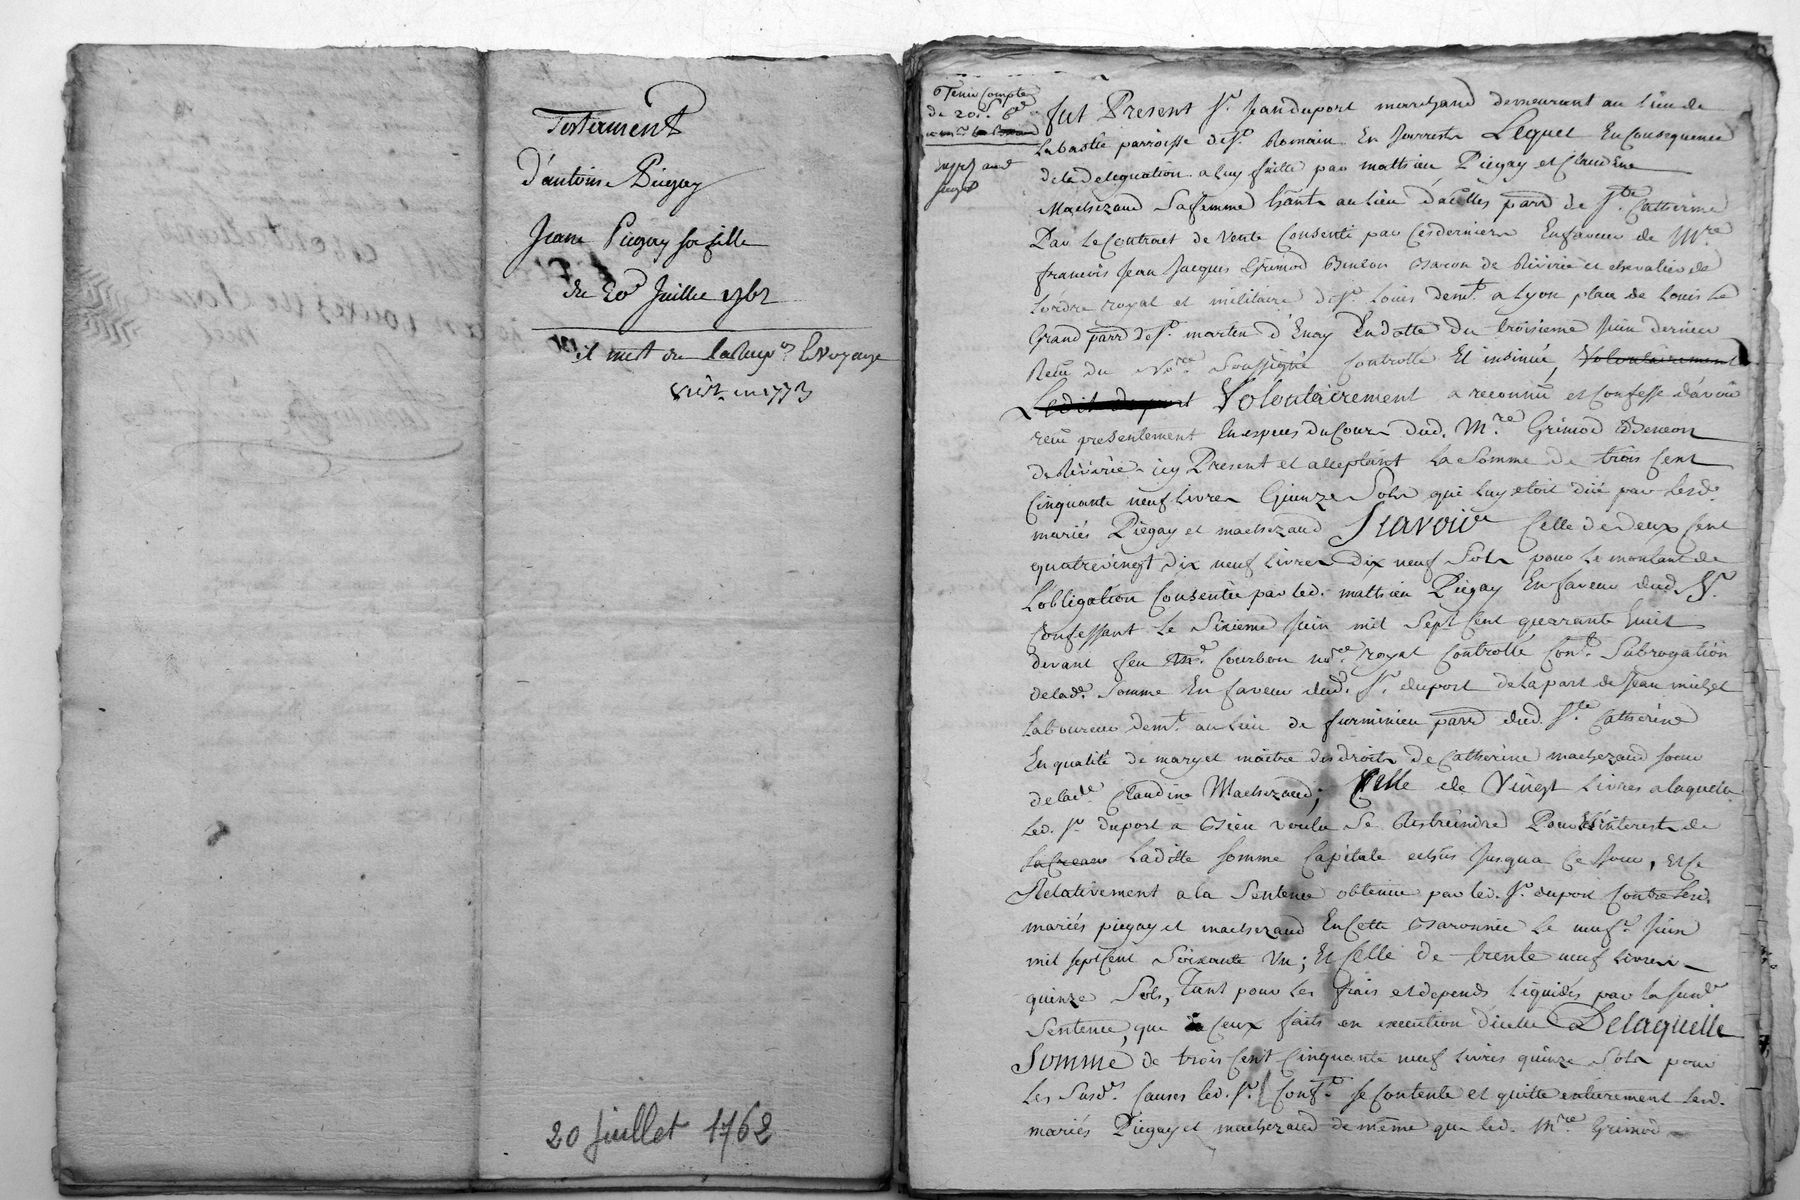 Testament
d'antoine Piegay
Jeane Piegay sa fille
du 20e Juillet 1762
il met de
en 1773
20 Juillet 1762
Tenu Compte
de 20s. 6d
fut Present Sr. Jean duport marchand demeurant au Lieu de
Labastie parroisse de St. Romain En Jarrest Lequel En Consequence
de la delegation a luy faitte par mathieu Piegay et Claudine
Machezaud Sa femme hants au Lieu parr de Ste. Catherine
Par Le Contract de Vente Consenti par Ces derniers En faveur de Mre
francois Jean Jacques Grimod Benéon Baron de Riverie et chevalier de
Lordre royal et militaire de St. Louis demt. a Lyon place de Louis Le
Grand parr de St. martin d'Enay En datte du troisieme Juin dernier
Reçu du Nore. Soussigné Controllé Et insinué, Volontairement
Ledit duport Volontairement a reconnu et Confessé d'avoir
reçu presentement En especes du Cours dud. Mre. Grimod Beneon
de Riverie icy Present et acceptant La Somme de trois Cent
Cinquante neuf Livres Quinze Sols qui luy etoit düe par Lesd.
mariés Piegay et machezaud Scavoir Celle de deux Cent
quatrevingt dix neuf Livres dix neuf Sols pour Le montant de
Lobligation Consentie par led. mathieu Piegay En faveur dud. Sr.
Confessant Le Sixieme Juin mil Sept Cent quarrante huit
devant feu Me. Courbon nore. royal Controllé Cont. Subrogation
de lade. Somme En faveur dud. Sr. duport de la part de Jean michel
Laboureur demt. au Lieu de furminieu parr dud. Ste. Catherine
En qualité de mary et maitre des droits de Catherine machezaud soeur
de lade. Claudine Machezaud; Celle de Vingt Livres a laquelle
Led. Sr. duport a Bien voulu Se Restreindre Pour L'interest de
Laditte Somme Capitale echus Jusqua Ce Jour, et Ce
Relativement a la Sentence obtenue par led. Sr. duport Contre Lesd.
mariés piegay et machezaud En Cette Baronnie Le neufe. Juin
mil sept Cent Soixante Un; Et Celle de trente neuf Livres
quinze Sols, Tant pour Les frais et depends Liquidés par la susde.
Sentence, que Ceux faits en execution d'icelle Delaquelle
Somme de trois Cent Cinquante neuf Livres quinze Sols pour
Les Susd. Causes led. Sr. Conft. Se Contente et quitte entierement Lesd.
mariés Piegay et machezaud de même que led. Mre. Grimod